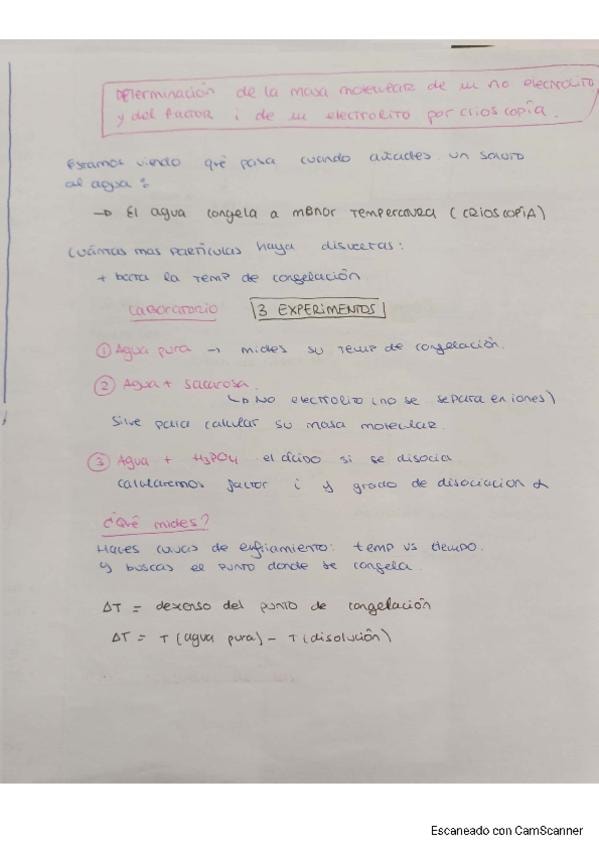 Determinación de la masa molecular de un no electrolito
y del factor i de un electrolito por crioscopía.
Estamos viendo qué pasa cuando añades un soluto
al agua:
→ El agua congela a menor temperatura (CRIOSCOPÍA)
Cuántas mas partículas haya disueltas:
+ baja la temp de congelación
Laboratorio 3 EXPERIMENTOS
① Agua pura → mides su temp de congelación.
② Agua + sacarosa.
↳ NO electrolito (no se separa en iones)
Sirve para calcular su masa molecular.
③ Agua + H3PO4 el ácido si se disocia
calcularemos factor i y grado de disociacion α
¿Qué mides?
Haces curvas de enfriamiento: temp vs tiempo.
y buscas el punto donde se congela.
ΔT = descenso del punto de congelación
ΔT = T (agua pura) - T (disolución)
Escaneado con CamScanner